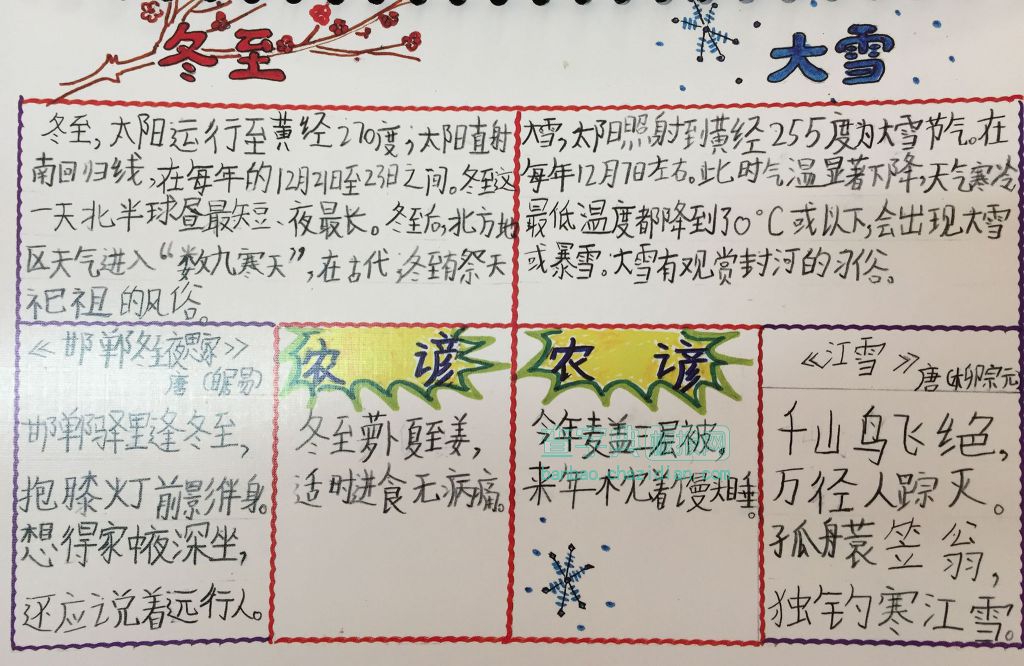 冬至
大雪
冬至,太阳运行至黄经270度;太阳直射
南回归线,在每年的12月21日至23日之间。冬至这
一天北半球昼最短、夜最长。冬至后,北方地
区天气进入“数九寒天”,在古代冬至有祭天
祀祖的风俗。
大雪,太阳照射到黄经255度为大雪节气。在
每年12月7日左右。此时气温显著下降,天气寒冷
最低温度都降到了0°C或以下,会出现大雪
或暴雪。大雪有观赏封河的习俗。
《邯郸冬至夜思家》
唐(白居易)
邯郸驿里逢冬至,
抱膝灯前影伴身。
想得家中夜深坐,
还应说着远行人。
农谚
冬至萝卜夏至姜,
适时进食无病痛。
农谚
今年麦盖三层被,
来年枕着馒头睡。
《江雪》
唐(柳宗元)
千山鸟飞绝,
万径人踪灭。
孤舟蓑笠翁,
独钓寒江雪。